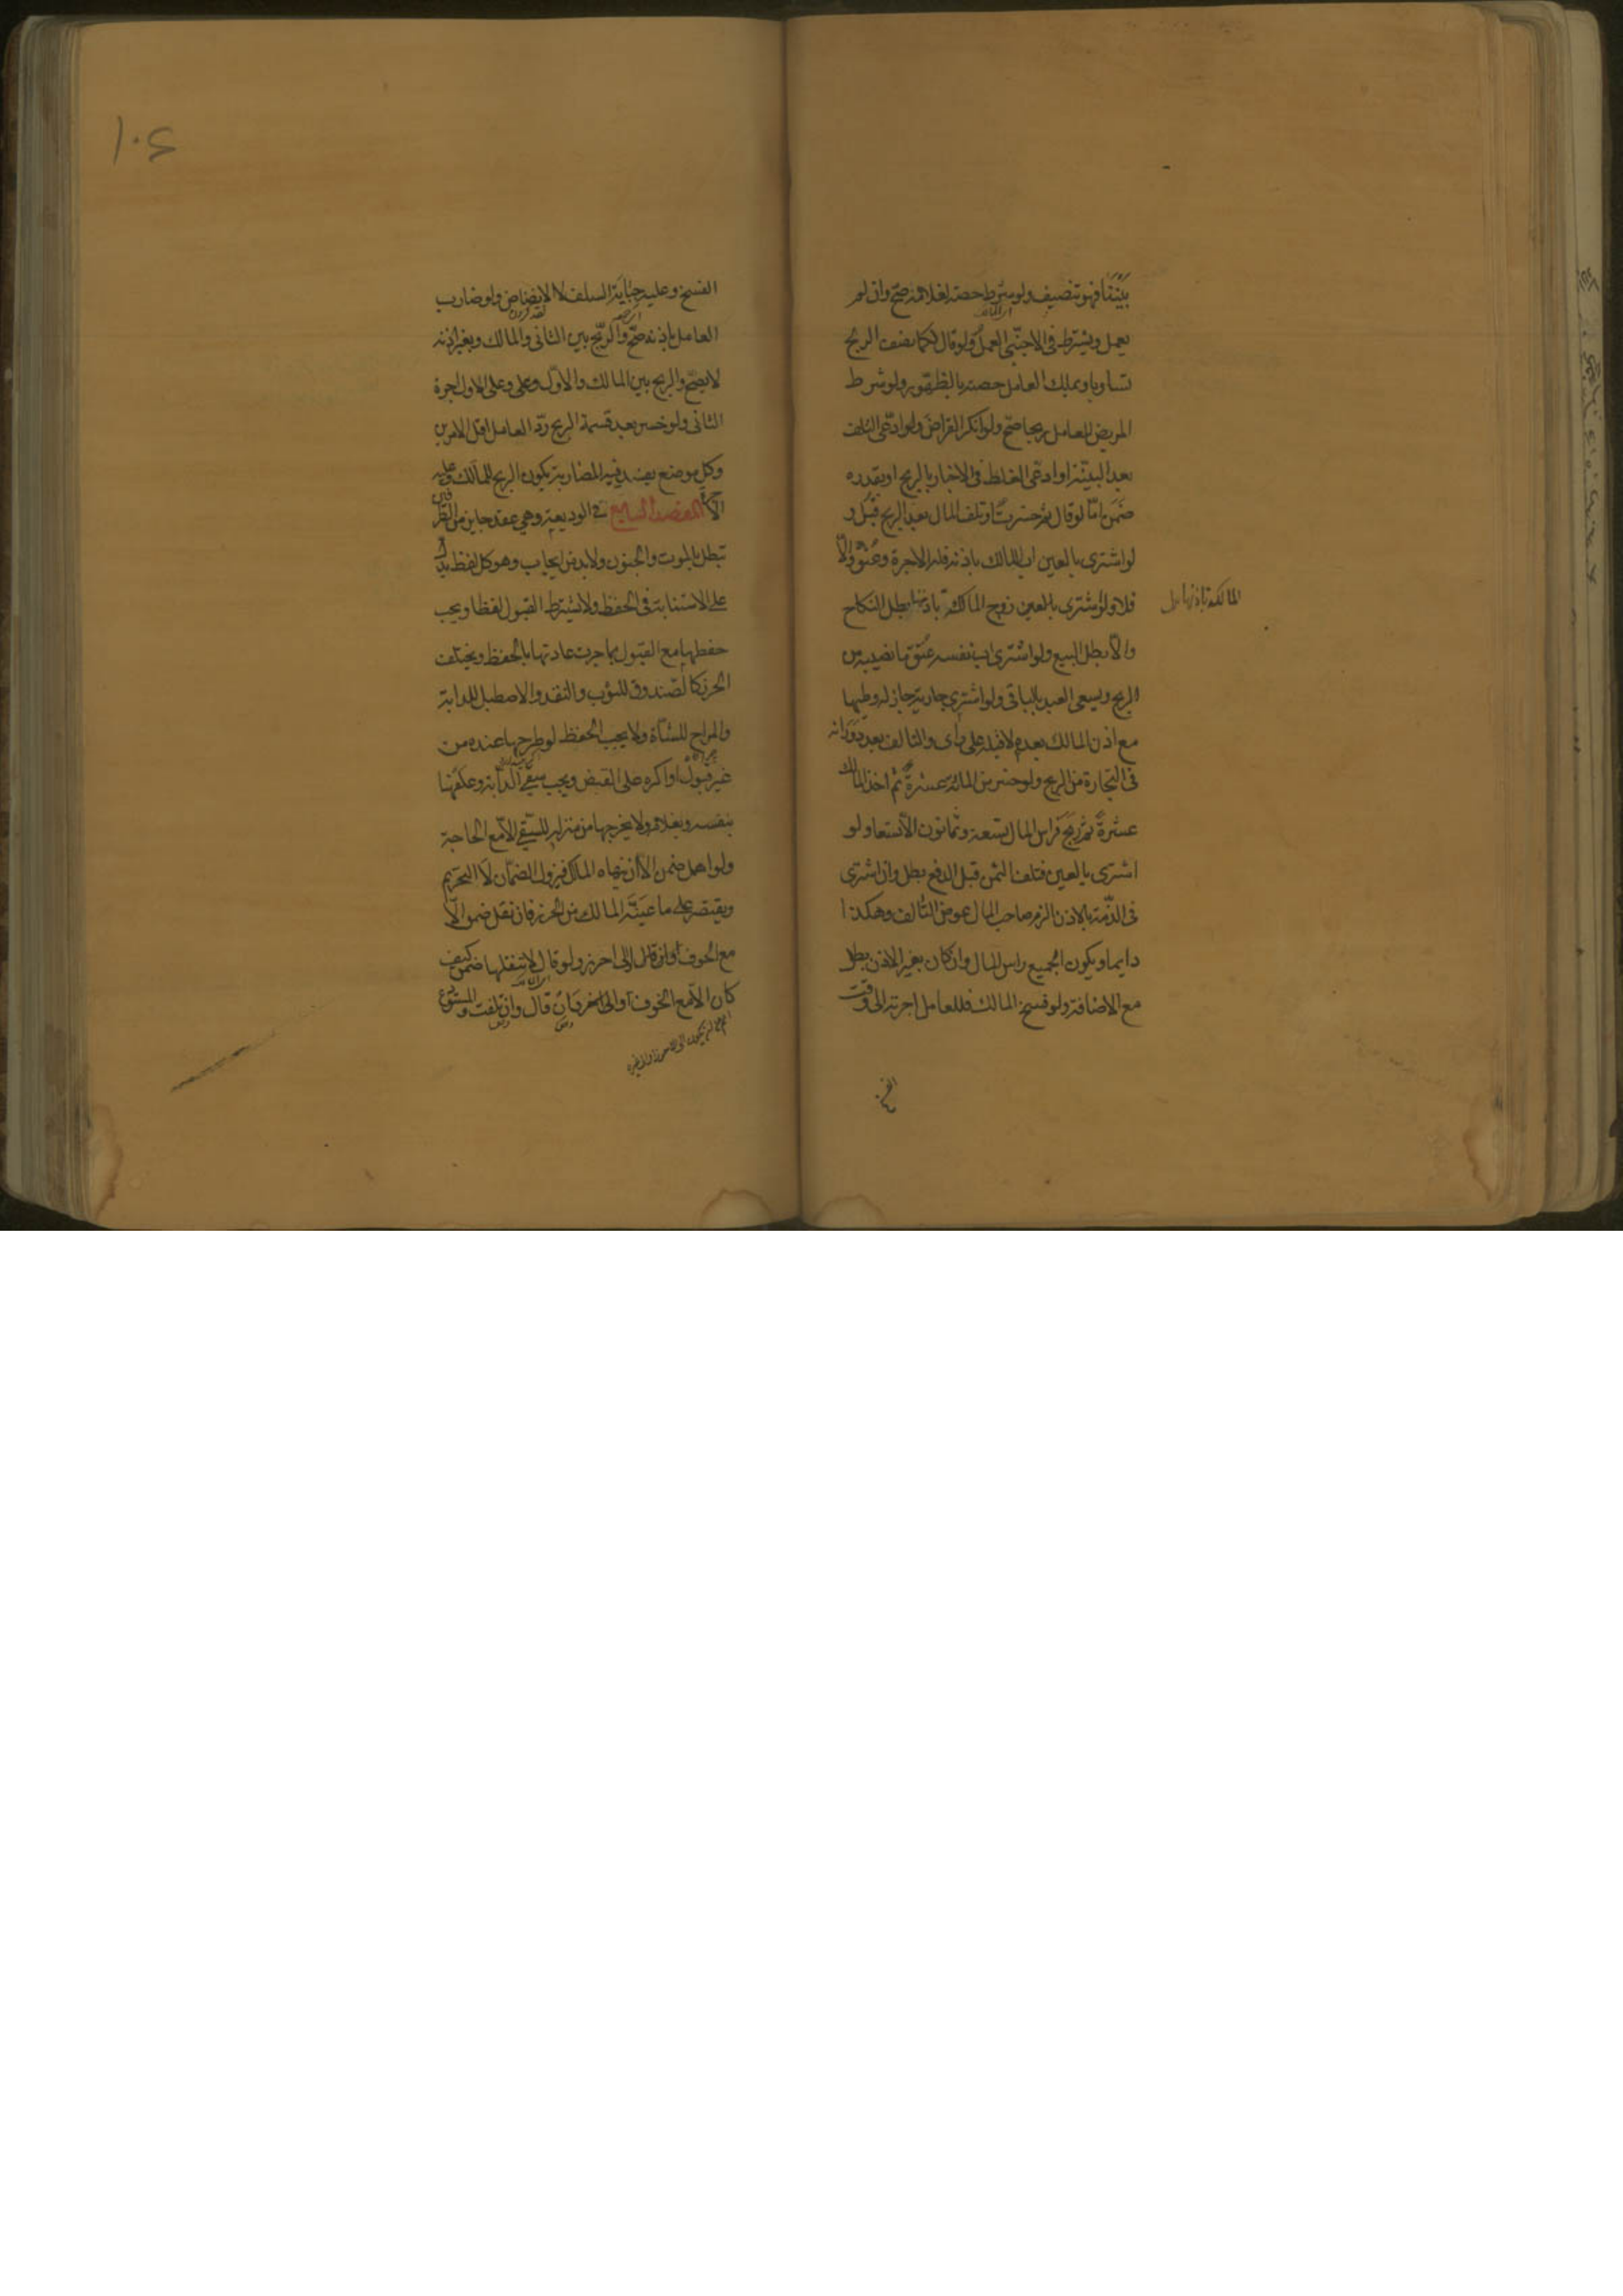 بيننا فهو تنصيف ولو شرط حصة لغلامه صح وان لم
يعمل ويشترط في الاجنبي العمل ولو قال لكما نصف الربح
تساويا ويملك العامل حصته بالظهور ولو شرط
المريض للعامل ربحا صح ولو انكر القراض ولو ادعى التلف
بعد البينة او ادعى الغلط في الاخبار بالربح او بقدره
ضمن اما لو قال ثم خسرت او تلف المال بعد الربح قبل و
لو اشترى بالعين اب المالك باذنه فله الاجرة وعتق والا
فلا ولو اشترى بالعين زوج المالك باذنها بطل النكاح
المالكة باذنها بطل
والا بطل البيع ولو اشترى اب نفسه عتق ما نصيبه من
الربح ويسعى العبد بالباقي ولو اشترى جارية جاز له وطيها
مع اذن المالك بعده لا قبله على راى والتالف بعد دورانه
في التجارة من الربح ولو خسر من المائة عشرة ثم اخذ المالك
عشرة ثم ربح فراس المال تسعة وثمانون الا تسعا ولو
اشترى بالعين فتلف الثمن قبل الدفع بطل وان اشترى
في الذمة بالاذن الزم صاحب المال عوض التالف وهكذا
دايما ويكون الجميع راس المال وان كان بغير الاذن بطل
مع الاضافة ولو فسخ المالك فللعامل اجرته الى وقت
الفسخ
الفسخ وعليه جباية السلف لا الانضاض ولو ضارب
العامل باذنه صح والربح بين الثاني والمالك وبغير اذنه
لا يصح والربح بين المالك والاول وعلى وعلى الاول اجرة
الثاني ولو خسر بعد قسمة الربح رد العامل اقل الامرين
وكل موضع يفسد فيه المضاربة يكون الربح للمالك وعليه
الاجرة المقصد السابع في الوديعة وهي عقد جايز من الطرفين
تبطل بالموت والجنون ولابد من ايجاب وهو كل لفظ يدل
على الاستنابة في الحفظ ولا يشترط القبول لفظا ويجب
حفظها مع القبول بما جرت عادتها بالحفظ ويختلف
الحرز كالصندوق للثوب والنقد والاصطبل للدابة
والمراح للشاة ولا يجب الحفظ لو طرحها عنده من
غير قبول او اكره على القبض ويجب سقي الدابة وعلفها
بنفسه وبغلامه ولا يخرجها من منزله للسقي الا مع الحاجة
ولو اهمل ضمن الا ان نهاه المالك فيزول الضمان لا التحريم
ويقتصر على ما عينه المالك من الحرز فان نقل ضمن الا
مع الخوف او ان قل الى احرز ولو قال لا تنقلها ضمن كيف
كان الا مع الخوف او الى احرز فان قال وان تلفت و
١٠٤